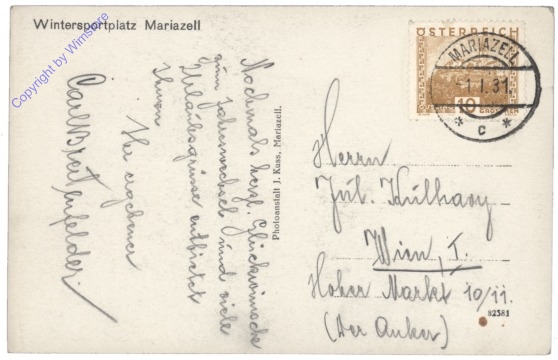 Wintersportplatz Mariazell
Copyright by Winstore
ÖSTERREICH
10
GROSCHEN
MARIAZELL
1.I.31
* c *
Nochmals herzl. Glückwünsche
zum Jahreswechsel und viele
Urlaubsgrüsse entbietet
Ihnen
Ihr ergebener
Carl Breitenfelder.
Photoanstalt J. Kuss, Mariazell.
Herrn
Jul. Kulhavy
Wien, I.
Hoher Markt 10/11.
(Der Anker)
82581